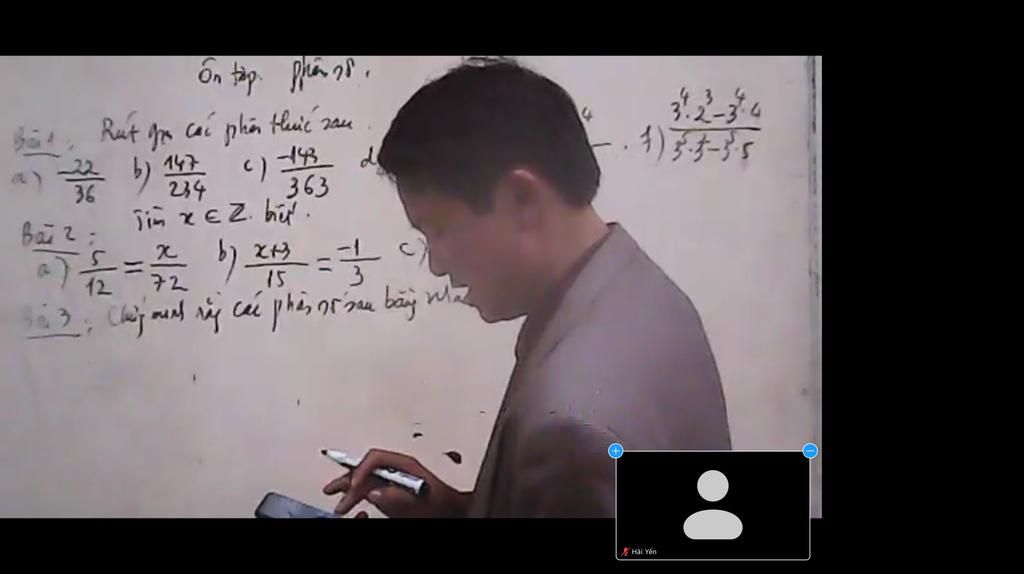 Ôn tập phân số.
Bài 1: Rút gọn các phân thức sau.
a) -22/36 b) 147/234 c) -143/363 d) 4 . f) (3^4·2^3-3^4·4)/(3^5·3^2-3^5·5)
Bài 2: Tìm x ∈ Z biết.
a) 5/12 = x/72 b) (x+3)/15 = -1/3 c)
Bài 3: Chứng minh rằng các phân số sau bằng nha
Hải Yến